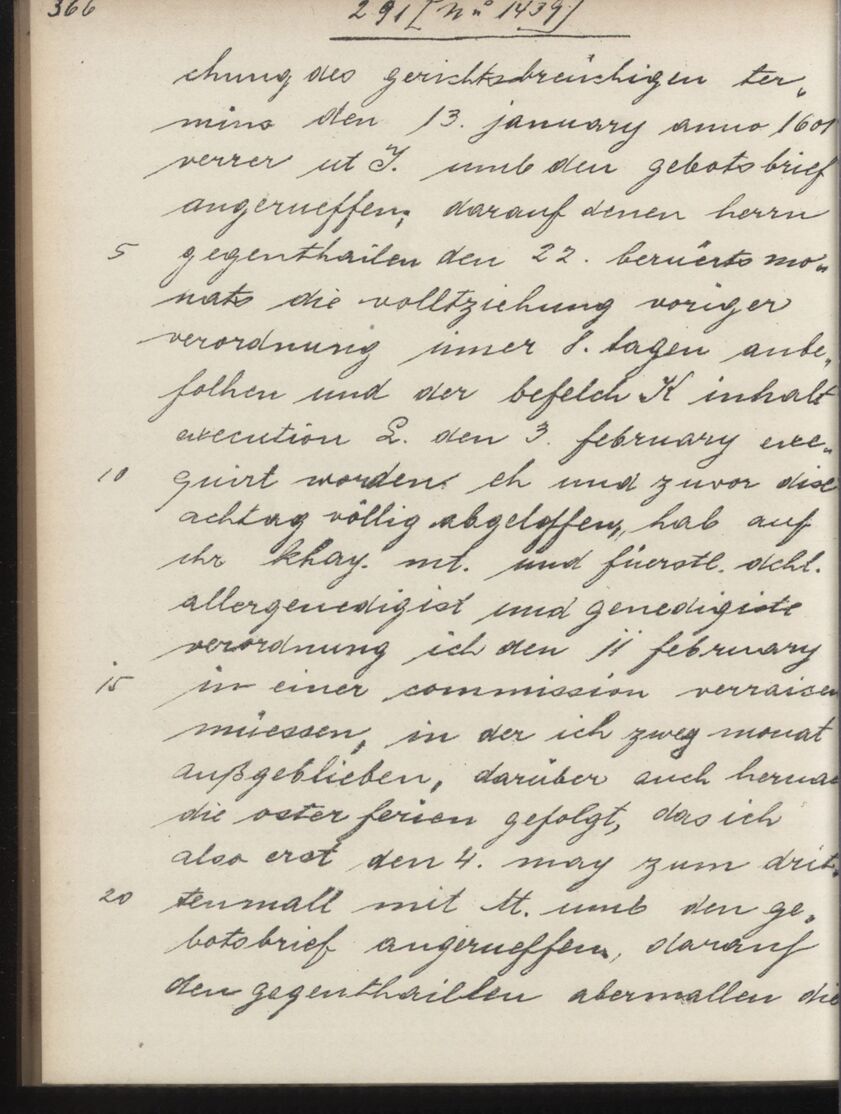 366
291 [No 1439]
chung des gerichtsbreüchigen ter„
mins den 13. january anno 1601
verrer ut J. umb den gebotsbrief
angerueffen; darauf denen herrn
5 gegenthailen den 22. beruerts mo„
nats die volltziehung voriger
verordnung inner 8. tagen anbe„
folhen und der befelch K inhalt
execution L. den 3. february exe„
10 quirt worden. eh und zuvor dise
achtag völlig abgeloffen, hab auf
ihr khay. mt. und füerstl. dchl.
allergenedigist und genedigiste
verordnung ich den 11 february
15 in einer commission verraisen
müessen, in der ich zwey monat
außgeblieben, darüber auch hernac
die osterferien gefolgt, das ich
also erst den 4. may zum drit„
20 tenmall mit M. umb den ge„
botsbrief angerueffen, darauf
den gegenthaillen abermallen die